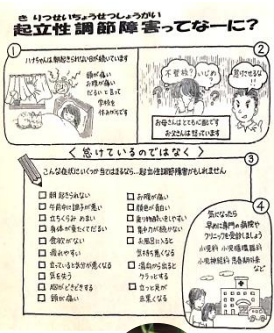 きりつせいちょうせつしょうがい
起立性調節障害ってなーに？
①
ハナちゃんは朝起きられない日が続いています
頭が痛い
お腹が痛い
だるいと言って
学校を
休みがちです
②
不登校？いじめ？
怠けるな
お母さんはとても心配です
お父さんは怒っています
＜怠けているのではなく＞
③
こんな症状にいくつか当てはまるなら…起立性調節障害かもしれません
□ 朝起きられない
□ 午前中は調子が悪い
□ 立ちくらみ めまい
□ 身体が重たくてだるい
□ 食欲がない
□ 疲れやすい
□ 立っていると気分が悪くなる
□ 気を失う
□ 胸がどきどきする
□ 頭が痛い
□ お腹が痛い
□ 顔色が青白い
□ 乗り物酔いをしやすい
□ 集中力が続かない
□ お風呂に入ると
気持ち悪くなる
□ 湯船から出ると
クラッとする
□ 立つと足が
赤黒くなる
④
気になったら
早めに専門の病院や
クリニックを受診しましょう
小児科 小児循環器科
小児神経科 思春期外来
など